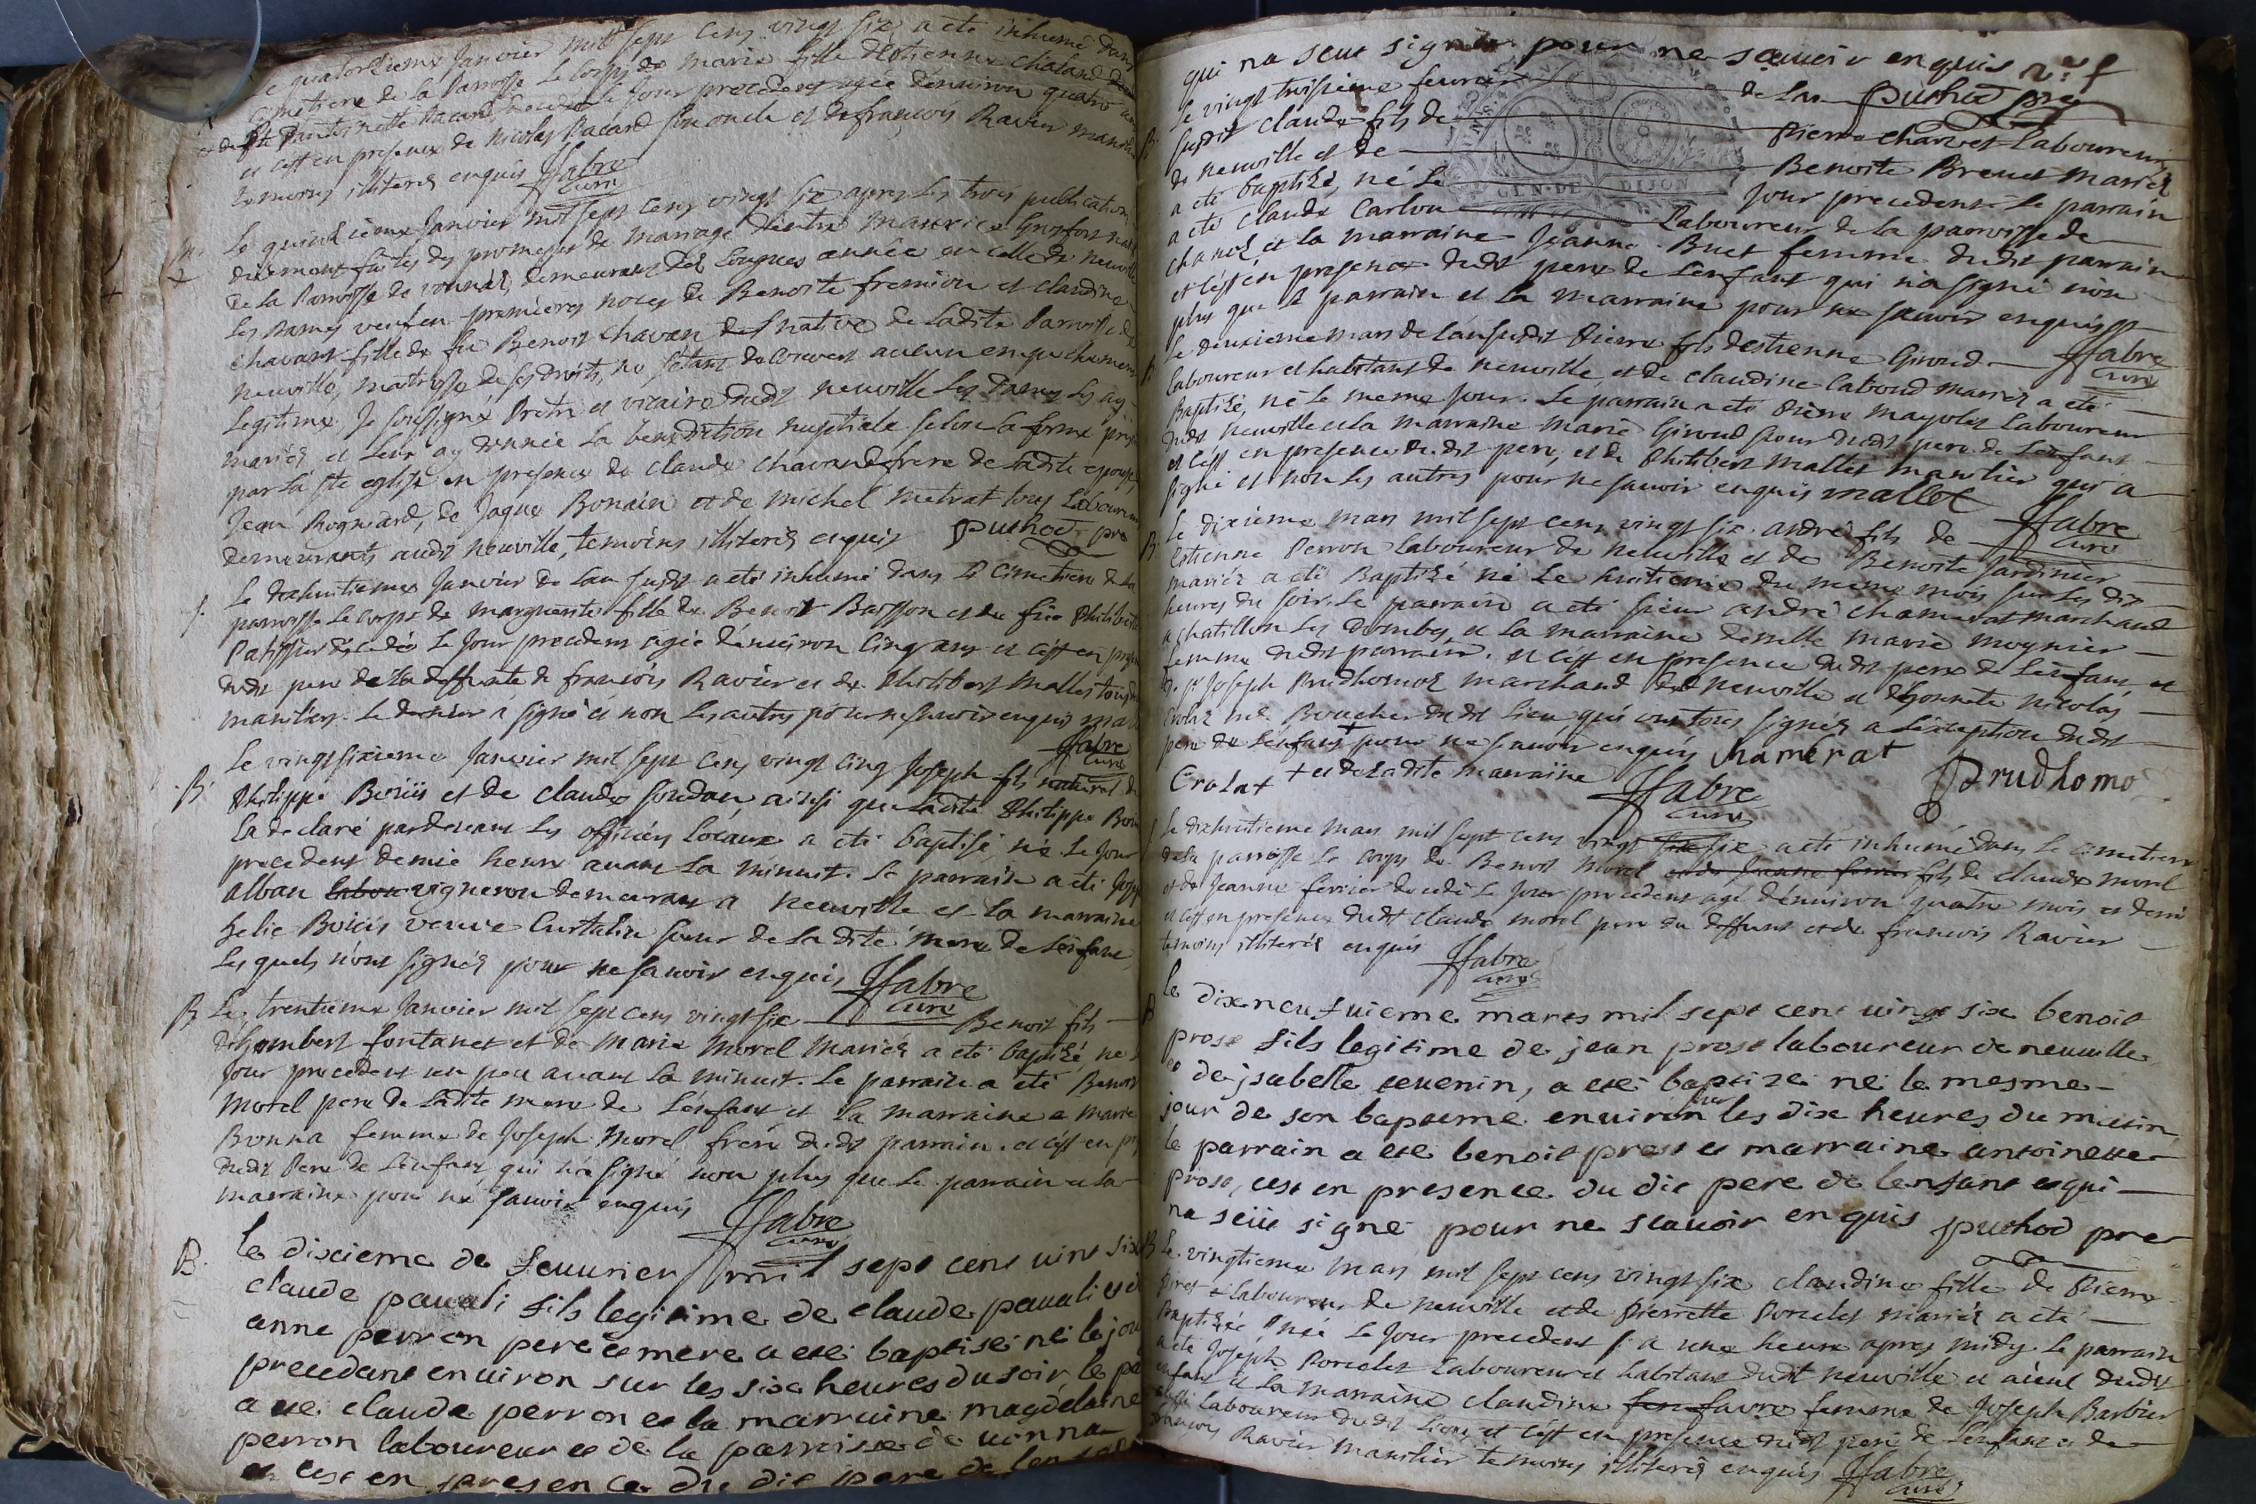 Le quatorzieme Janvier mil sept cens vingt six a eté inhumé dans
cimetiere de la Parroisse le corps de marie fille d'Estienne Chaland
et de Antoinette Pacard decedée le jour precedent agée d'environ quatre ans
et c'est en presence de nicolas Pacard son oncle et de françois Ravier manilier
temoins illiterés enquis ffabre
curé
Le quinzieme Janvier mil sept cens vingt six apres les trois publications
duement faites des promesses de mariage d'entre maurice
de la Parroisse de vonnas, demeurant des longues année en celle de neuville
les Dames veuf en premieres noces de Benoite fremion et claudine
chavant fille de fû Benoit chavan native de ladite Parroisse de
neuville, maitresse de ses droits, ne s'étant decouvert aucun empechement
legitime. Je soussigné Pretre et vicaire dudit neuville les Dames les ay
mariés et leur ay donnée la benediction nuptiale selon la forme
par la ste eglise en presence de claude chavand frere de ladite epouse,
Jean Rognard, de Jaque Bonain et de michel metrat tous Laboureurs
demeurants audit neuville, temoins illiterés enquis puthod pre
Le dixhuitieme Janvier de l'an susdit a eté inhumé dans le Cimetiere de la
parroisse le corps de marguerite fille de Benoit Basson et de fûe Philiberte
Patissier decedée le jour precedent agée d'environ cinq ans et c'est en presence
dudit pere de la deffunte de françois Ravier et de Philibert mallet tous deux
maniliers. Le dernier a signé et non les autres pour ne scavoir enquis
ffabre
curé
Le vingt sixieme Janvier mil sept cens vingt cinq Joseph fils naturel de
Philippe Boüis et de claude Goudan, ainsi que ladite Philippe
l'a declaré pardevant les officiers locaux a eté baptisé, né le jour
precedent demie heure avant la minuit. Le parrain a eté
alban vigneron demeurant a neuville et la marraine
helie Boüis veuve Curtalin soeur de la dite mere de l'enfant,
lesquels n'ont signés pour ne scavoir enquis ffabre
curé
B Le trentieme Janvier mil sept cens vingt six Benoit fils
d'humbert fontanet et de marie morel mariés a eté baptisé, né le
jour precedent un peu avant la minuit. Le parrain a eté Benoit
morel pere de ladite mere de l'enfant et la marraine a marie
Bonna femme de Joseph morel frere dudit parrain. et c'est en
dudit Pere de l'enfant, qui n'a signé non plus que le parrain et la
marraine pour ne scavoir enquis ffabre
curé
B. le dixieme de feuurier mil sept cent uint six
claude pauali fils legitime de claude pauali et d
anne perron pere et mere a esté baptisé né le jour
precedant enuiron sur les six heures du soir le pa
a ete claude perron et la marraine magdelaine
perron laboureur et de la parroisse de uonna
et cest en presence du dit pere de lenfant
qui na seut signer pour ne sçauoir enquis
puthod pre
B Le vingt troisieme feuvrier de l'an
susdit claude fils de Pierre charvet Laboureur,
de neuville et de Benoite Brevet mariés
a eté baptisé, né le jour precedent le parrain
a eté claude Carlon Laboureur de la parroisse de
chanoz et la marraine Jeanne Buet femme dudit parrain
et c'est en presence dudit pere de l'enfant qui n'a signé non
plus que le parrain et la marraine pour ne scavoir enquis
ffabre
curé
Le deuxieme mars de l'an susdit Pierre fils d'estienne Giroud
laboureur et habitant de neuville, et de claudine Caboud mariés a eté
Baptisé, né le meme jour. Le parrain a eté Pierre mayolet Laboureur
dudit neuville et la marraine marie Giroud soeur dudit pere de l'enfant
et c'est en presence dudit pere, et de Philibert mallet manilier qui a
signé et non les autres pour ne scavoir enquis mallet
ffabre
curé
B Le dixieme mars mil sept cens vingt six. andré fils de
Estienne Perron laboureur de neuville et de Benoite Jardinier
mariés a eté Baptisé né le huitieme du meme mois sur les dix
heures du soir. Le parrain a eté sieur andré chamerat marchand
a chatillon les Dombes, et la marraine demelle marie moynier
femme dudit parrain. et c'est en presence dudit pere de l'enfant, et
de sr Joseph Prudhomoz marchand de neuville et d'honnete nicolas
Crolaz me Boucher dudit lieu qui ont tous signés a l'exception dudit
pere de l'enfant + pour ne scavoir enquis Chamerat
Crolat + et de ladite marraine ffabre Prudhomo
curé
Le dixhuitieme mars mil sept cens vingt six a eté inhumé dans le cimetiere
de la parroisse le corps de Benoit morel et de Jeanne ferrier fils de claude morel
et de Jeanne ferrier decedé le jour precedent agé d'environ quatre mois et demi
et c'est en presence dudit claude morel pere du deffunt et de francois Ravier
temoins illiterés enquis ffabre
curé
B le dixneufuieme mares mil sept cent uingt six benoit
prost fils legitime de jean prost laboureur de neuuille
et de jsabelle teuenin, a esté baptizé né le mesme
jour de son bapteme enuiron sur les dix heures du matin
le parrain a esté benoit prost et marraine antoinette
prost, cest en presence du dit pere de lenfant et qui
na seüt signé pour ne scauoir enquis puthod pre
B Le vingtieme mars mil sept cens vingt six claudine fille de Pierre
laboureur de neuville et de Pierrette Porcelet mariés a eté
Baptizée née le jour precedent a une heure apres midy. Le parrain
a eté Joseph Porcelet Laboureur et habitant dudit neuville et aieul dudit
enfant et la marraine claudine favre femme de Joseph Barbier
aussi laboureur dudit lieu, et c'est en presence dudit pere de l'enfant et de
francois Ravier manilier temoins illiterés enquis ffabre
curé